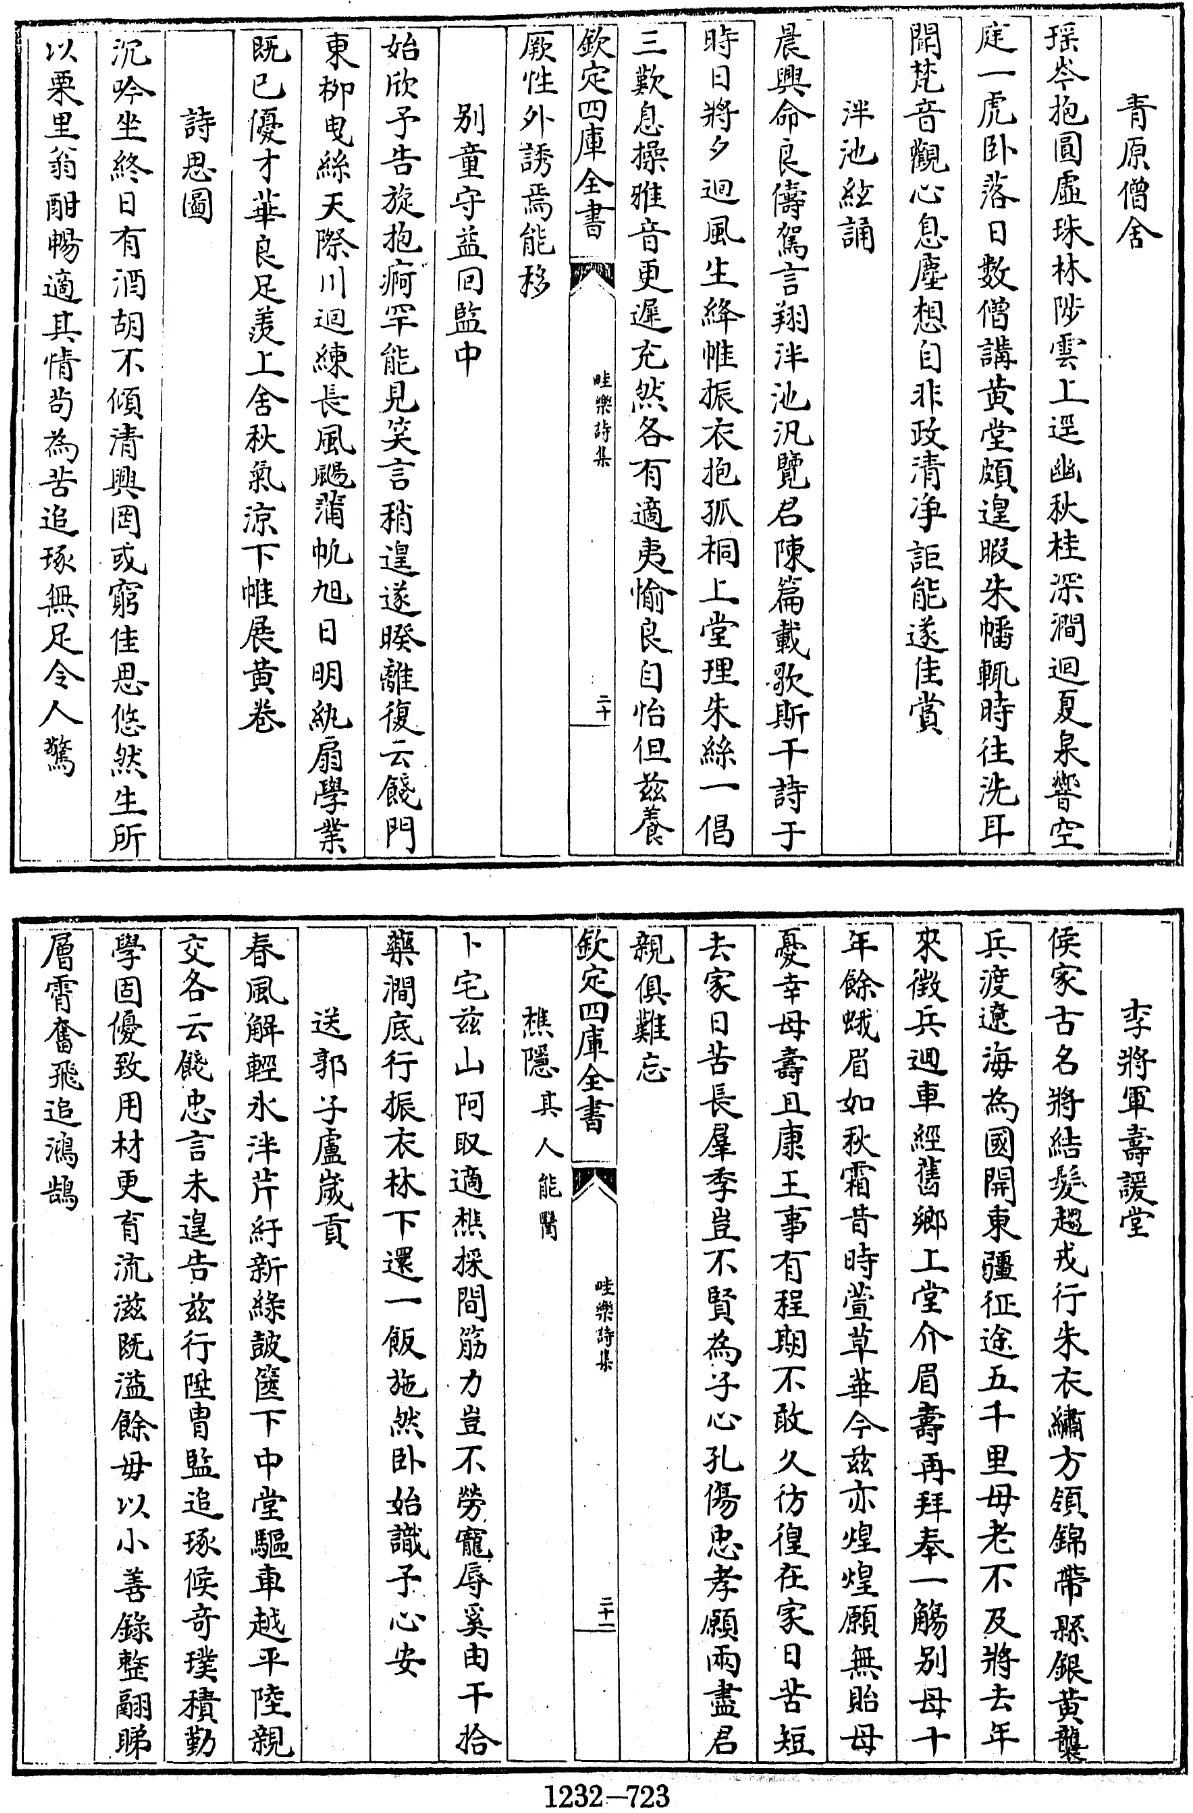 青原僧舍
瑶岑抱圓虛珠林陟雲上逕幽秋桂深澗迴夏泉響空
庭一虎卧落日數僧講黄堂頗遑暇朱幡輒時往洗耳
聞梵音觀心息塵想自非政清浄詎能遂佳賞
泮池絃誦
晨興命良儔駕言翔泮池汎覽君陳篇載歌斯干詩于
時日將夕迴風生絳帷振衣抱孤桐上堂理朱絲一倡
三歎息操雅音更遲充然各有適夷愉良自怡但兹養
欽定四庫全書
畦樂詩集
二十
厥性外誘焉能移
别童守益回監中
始欣予告旋抱痾罕能見笑言稍遑遂暌離復云餞門
東柳曳絲天際川迴練長風颺蒲帆旭日明紈扇學業
既已優才華良足羨上舍秋氣凉下帷展黄卷
詩思圖
沉吟坐終日有酒胡不傾清興罔或窮佳思悠然生所
以栗里翁酣暢適其情茍為苦追琢無足令人驚
李將軍壽諼堂
侯家古名將結髮趨戎行朱衣繡方領錦帶縣銀黄龔
兵渡遼海為國開東疆征途五千里母老不及將去年
來徴兵迴車經舊鄉上堂介眉壽再拜奉一觴别母十
年餘蛾眉如秋霜昔時萱草華今兹亦煌煌願無貽母
憂幸母壽且康王事有程期不敢久彷徨在家日苦短
去家日苦長羣季豈不賢為子心孔傷忠孝願兩盡君
親俱難忘
欽定四庫全書
畦樂詩集
二十一
樵隱其人能醫
卜宅兹山阿取適樵採間筋力豈不勞寵辱奚由干拾
藥澗底行振衣林下還一飯施然卧始識予心安
送郭子盧歲貢
春風解輕氷泮芹紆新緑鼓篋下中堂驅車越平陸親
交各云餞忠言未遑告兹行陞胄監追琢候奇璞積勤
學固優致用材更育流滋既溢餘毋以小善錄整翮睇
層霄奮飛追鴻鵠
1232—723